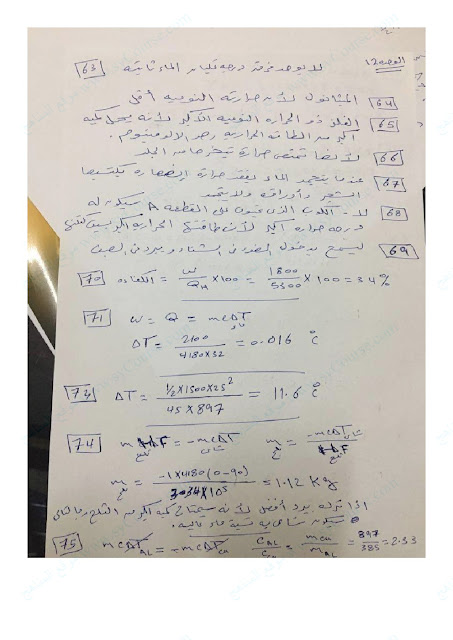 الوحدة 12
63 لا يوجد فرق درجة غليان الماء ثابتة
64 الميثانول لأن حرارته النوعية أقل
65 الفلز ذو الحرارة النوعية الأكبر لأنه يحمل كمية
أكبر من الطاقة الحرارية وهو الألومنيوم.
66 لأنها تمتص حرارة تبخرها من الجلد
67 عندما يتجمد الماء يفقد حرارة انصهاره يكتسبها
الشجر وأوراقه ولا يتجمد
68 لا - الكوب الذي يحتوي على القطعة A سيكون له
درجة حرارة أكبر لأن طاقتها الحرارية أكبر ليس كتلتها
69 ليسمح بدخول الضوء في الشتاء ويبرد في الصيف
70 الكفاءة = W/QH × 100 = 1800/5300 × 100 = 34%
71 W = Q = mCΔT ماء
ΔT = 2100/4180×32 = 0.016 °C
73 ΔT = ½×1500×25²/45×897 = 11.6 °C
74 m HF = -mCΔT m = -mCΔT/HF
m = -1×4180(0-90)/3.34×10⁵ = 1.12 Kg
إذا ترك يبرد أفضل لأنه سيحتاج كمية أكبر من الثلج وبالتالي
سيكون شاي به نسبة ماء عالية.
75 mCΔT AL = -mCΔT cu C AL/C cu = m cu/m AL = 897/385 = 2.33